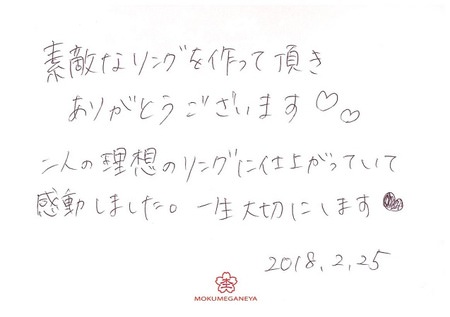 素敵なリングを作って頂き
ありがとうございます♡♡
二人の理想のリングに仕上がっていて
感動しました。一生大切にします♥♥
2018.2.25
MOKUMEGANEYA